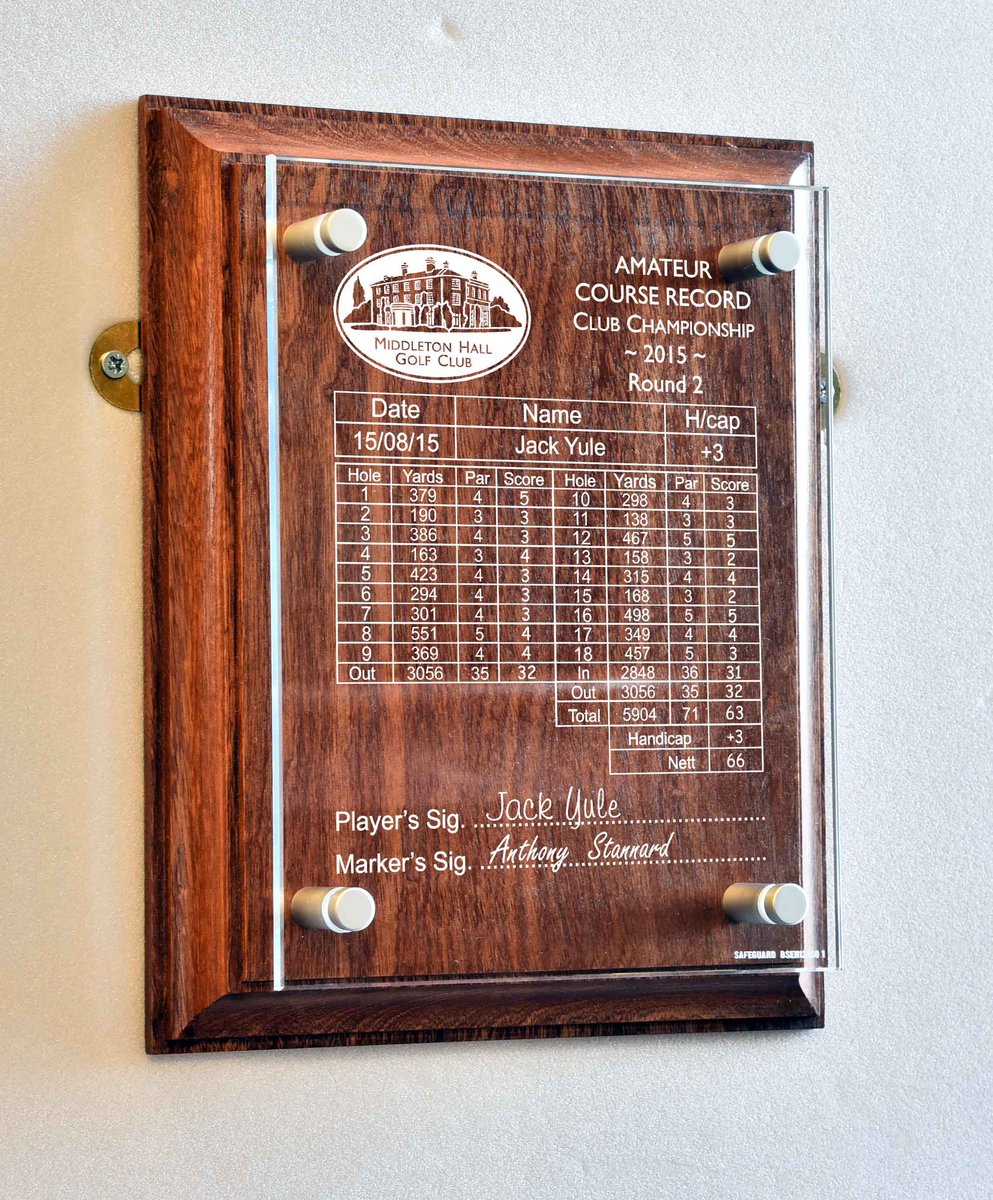 MIDDLETON HALL
GOLF CLUB
AMATEUR
COURSE RECORD
CLUB CHAMPIONSHIP
~ 2015 ~
Round 2
Date Name H/cap
15/08/15 Jack Yule +3
Hole Yards Par Score Hole Yards Par Score
1 379 4 5 10 298 4 3
2 190 3 3 11 138 3 3
3 386 4 3 12 467 5 5
4 163 3 4 13 158 3 2
5 423 4 3 14 315 4 4
6 294 4 3 15 168 3 2
7 301 4 3 16 498 5 5
8 551 5 4 17 349 4 4
9 369 4 4 18 457 5 3
Out 3056 35 32 In 2848 36 31
Out 3056 35 32
Total 5904 71 63
Handicap +3
Nett 66
Player's Sig. Jack Yule
Marker's Sig. Anthony Stannard
SAFEGUARD